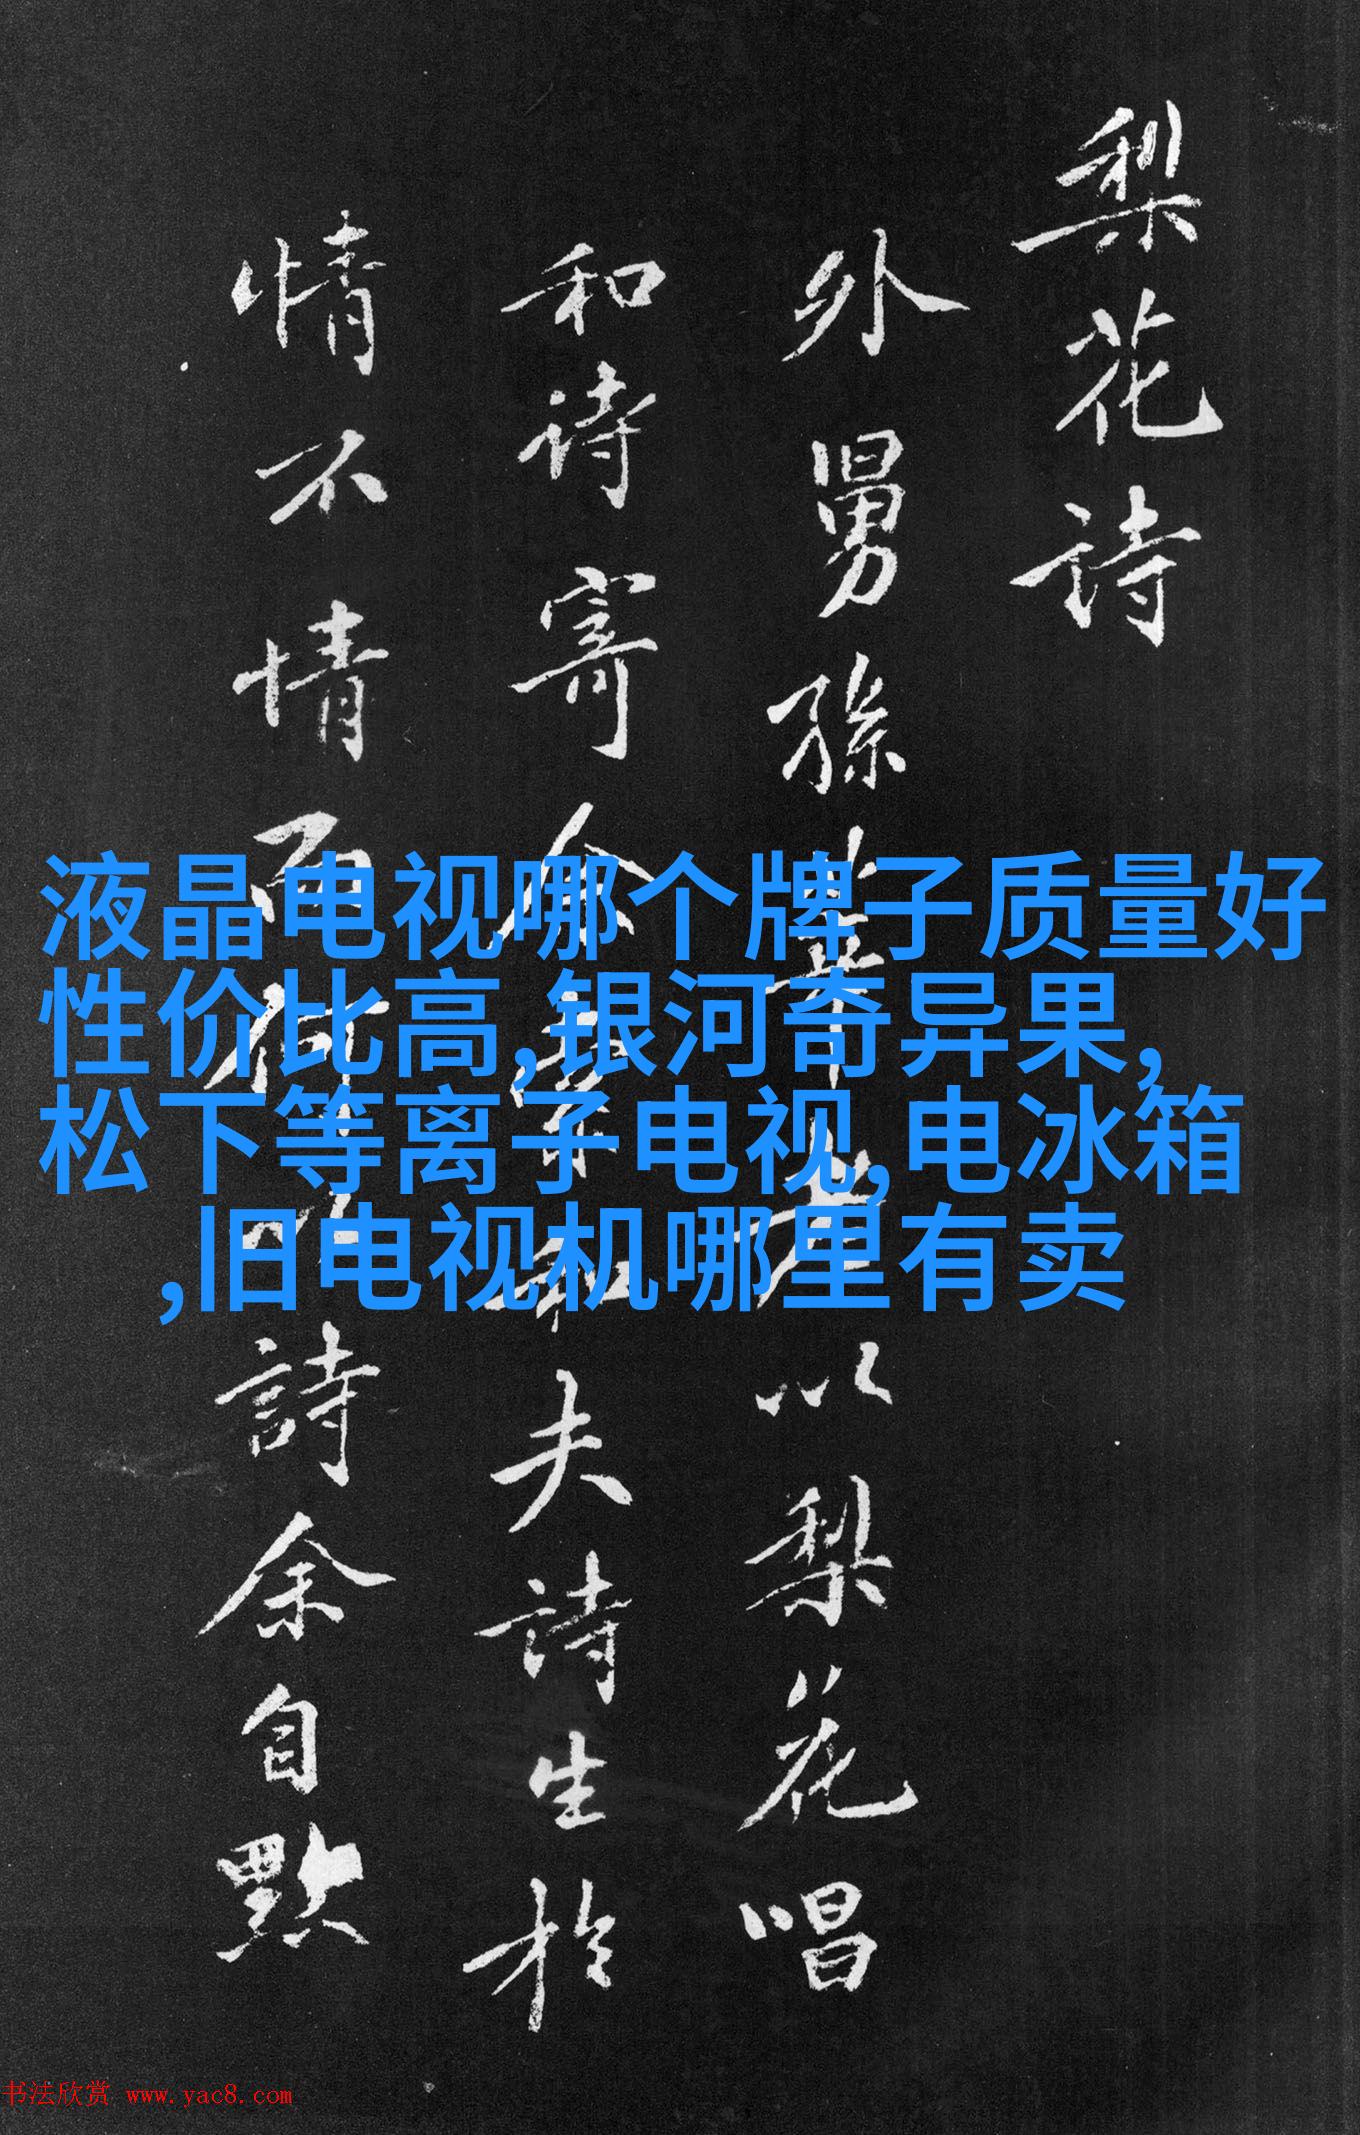 梨花诗
外舅孫莘老以梨花唱
和诗寄余索和夫诗生於
情不情而何以詩余自默
液晶电视哪个牌子质量好
性价比高,银河奇异果,
松下等离子电视,电冰箱
,旧电视机哪里有卖
书法欣赏 www.yac8.com